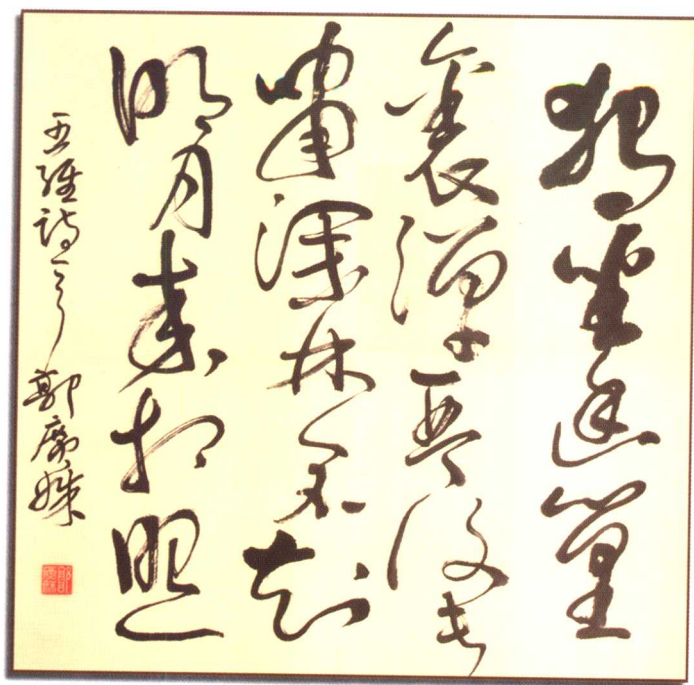 獨坐幽篁
裏彈琴復長
嘯深林人不知
明月來相照
王維詩 郭廣